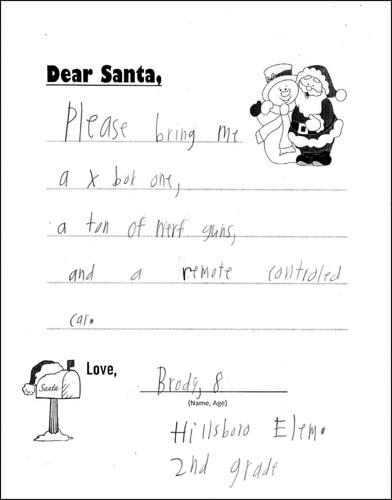 Dear Santa,
Please bring me
a x box one,
a ton of nerf guns,
and a remote controled
car.
Santa
Love,
Brody, 8
(Name, Age)
Hillsboro Elem.
2nd grade